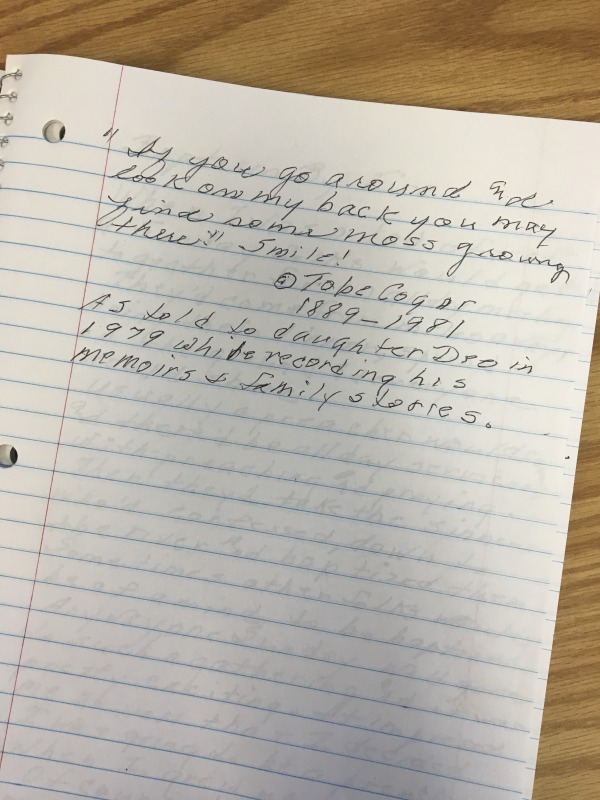 "As you go around and
look on my back you may
find some moss growing
there!" Smile!
Tobe Cogar
1889-1981
As told to daughter Deo in
1979 while recording his
memoirs & family stories.